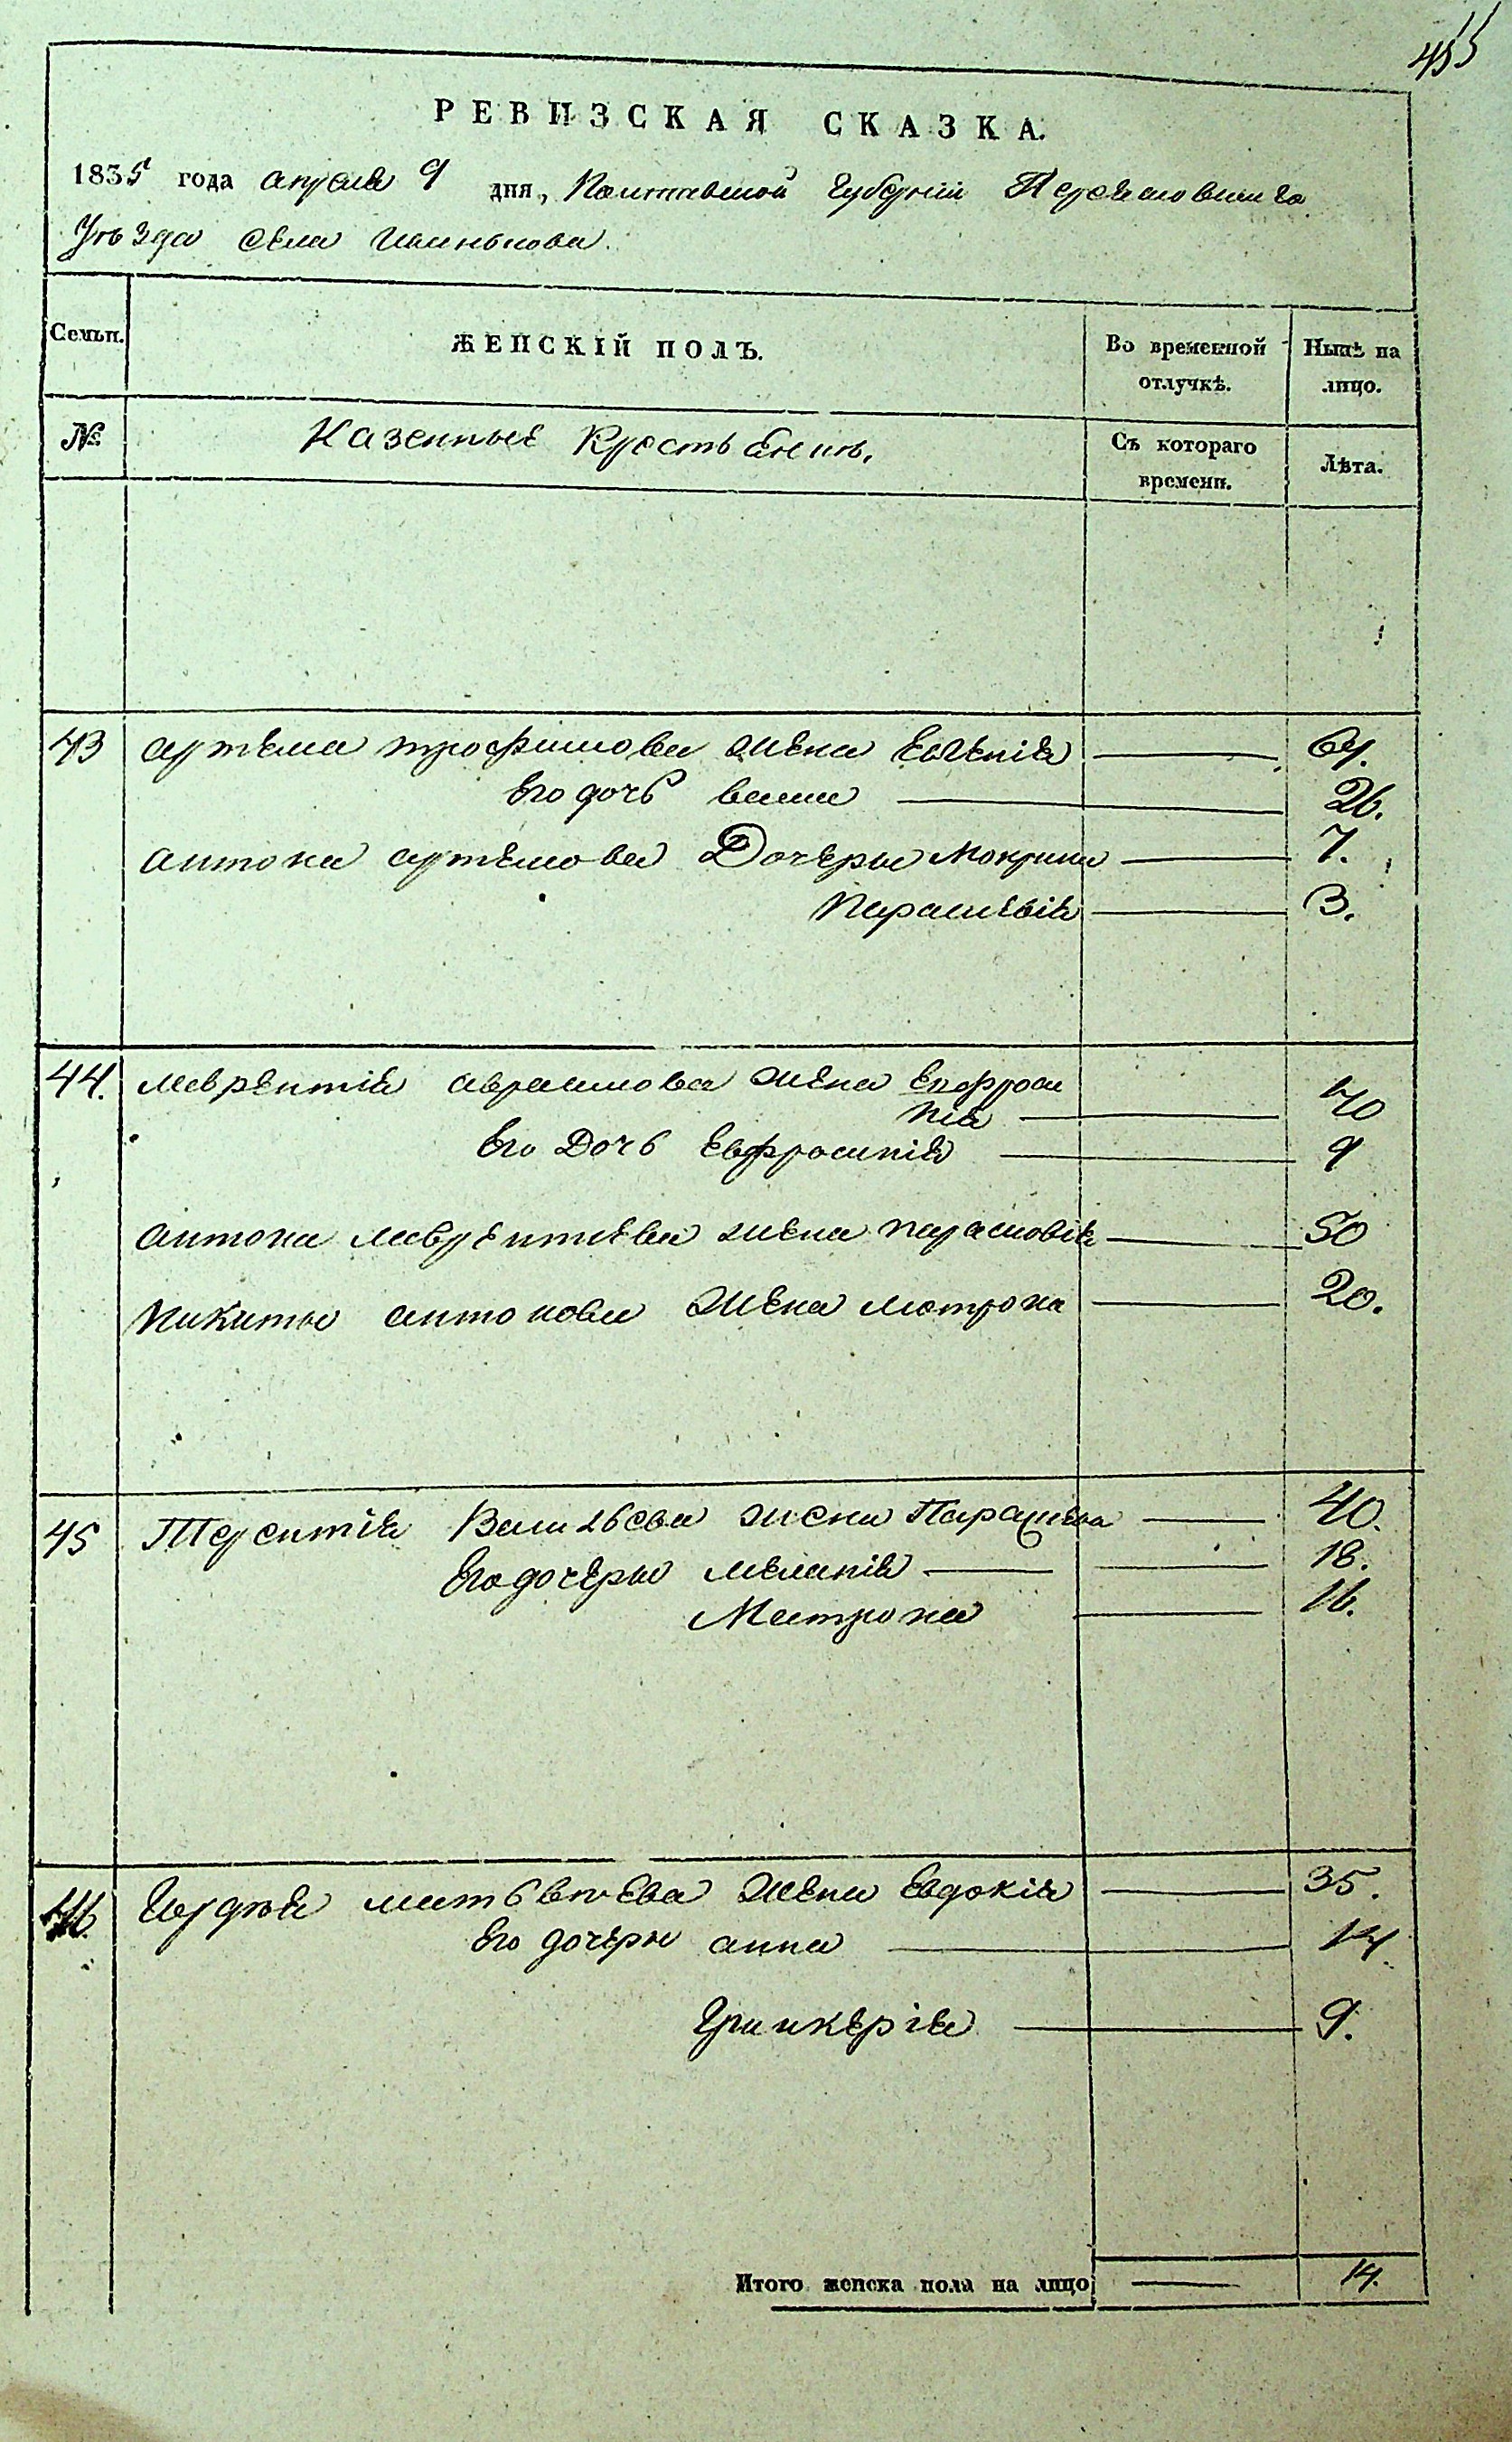 455
РЕВИЗСКАЯ СКАЗКА.
1835 года апреля 9 дня, Полтавской Губернїи Переясловскаго
Уѣзда села
Семьи.
ЖЕНСКІЙ ПОЛЪ.
Во временной отлучкѣ.
Нынѣ на лицо.
№
Казенные Крестьяне
Съ котораго времени.
Лѣта.
43 артема трофимова жена Евгенія 64.
Его дочь 26.
антона артемова Дочеры Мокрина 7.
Параскевія 3.
44. лаврентія аврамова жена Епфроси
нія 70
Его Дочь Евфросинія 9
антона лаврентіева жена парасковія 50
Никиты антонова жена мотрона 20.
45 Терентія Васильева жена Параскева 40.
Его дочеры меланія 18.
Матрона 16.
46. Гордѣя матвѣева жена Евдокія 35.
Его дочеры анна 14.
Гликерія 9.
Итого женска пола на лицо 14.